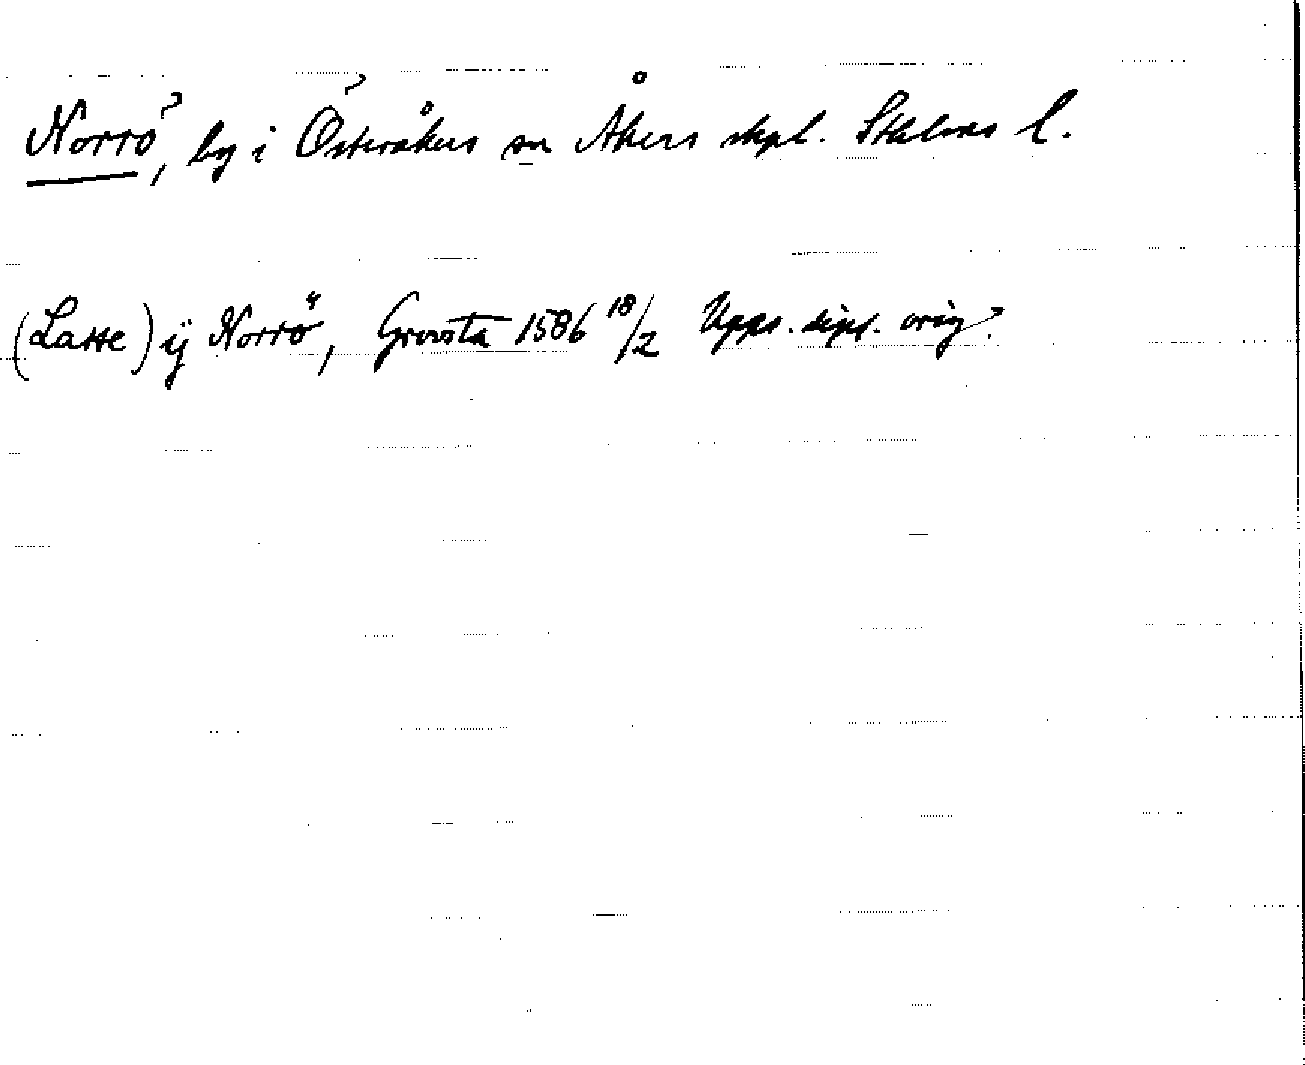 Norrö, by i Österåkers sn Åkers skpl. Sthlms l.
(Lasse) ÿ Norrö, Grovsta 1586 18/2 Upps. dipl. orig.